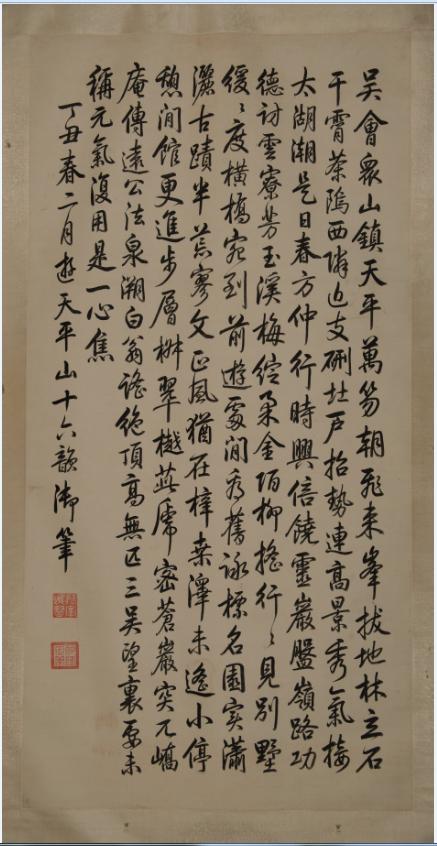 吳會眾山鎮天平萬笏朝飛來峯拔地林立石
干霄茶隖西隣近支硎北戶招勢連高景秀氣接
太湖潮是日春方仲行時興倍饒靈巖盤嶺路功
德訪雲寮芳玉溪梅綻柔金陌柳搖行〻見別墅
緩〻度橫橋宛到前遊處閒看舊詠標名園實瀟
灑古蹟半荒寥文正風猶在梓桒澤未遙小停
憩閒館更進步層椒翠樾密蒼巖突兀嶠
庵傳遠公法泉溯白翁謠絕頂高無匹三吳望裏要未
稱元氣復用是一心焦
丁丑春二月遊天平山十六韻御筆